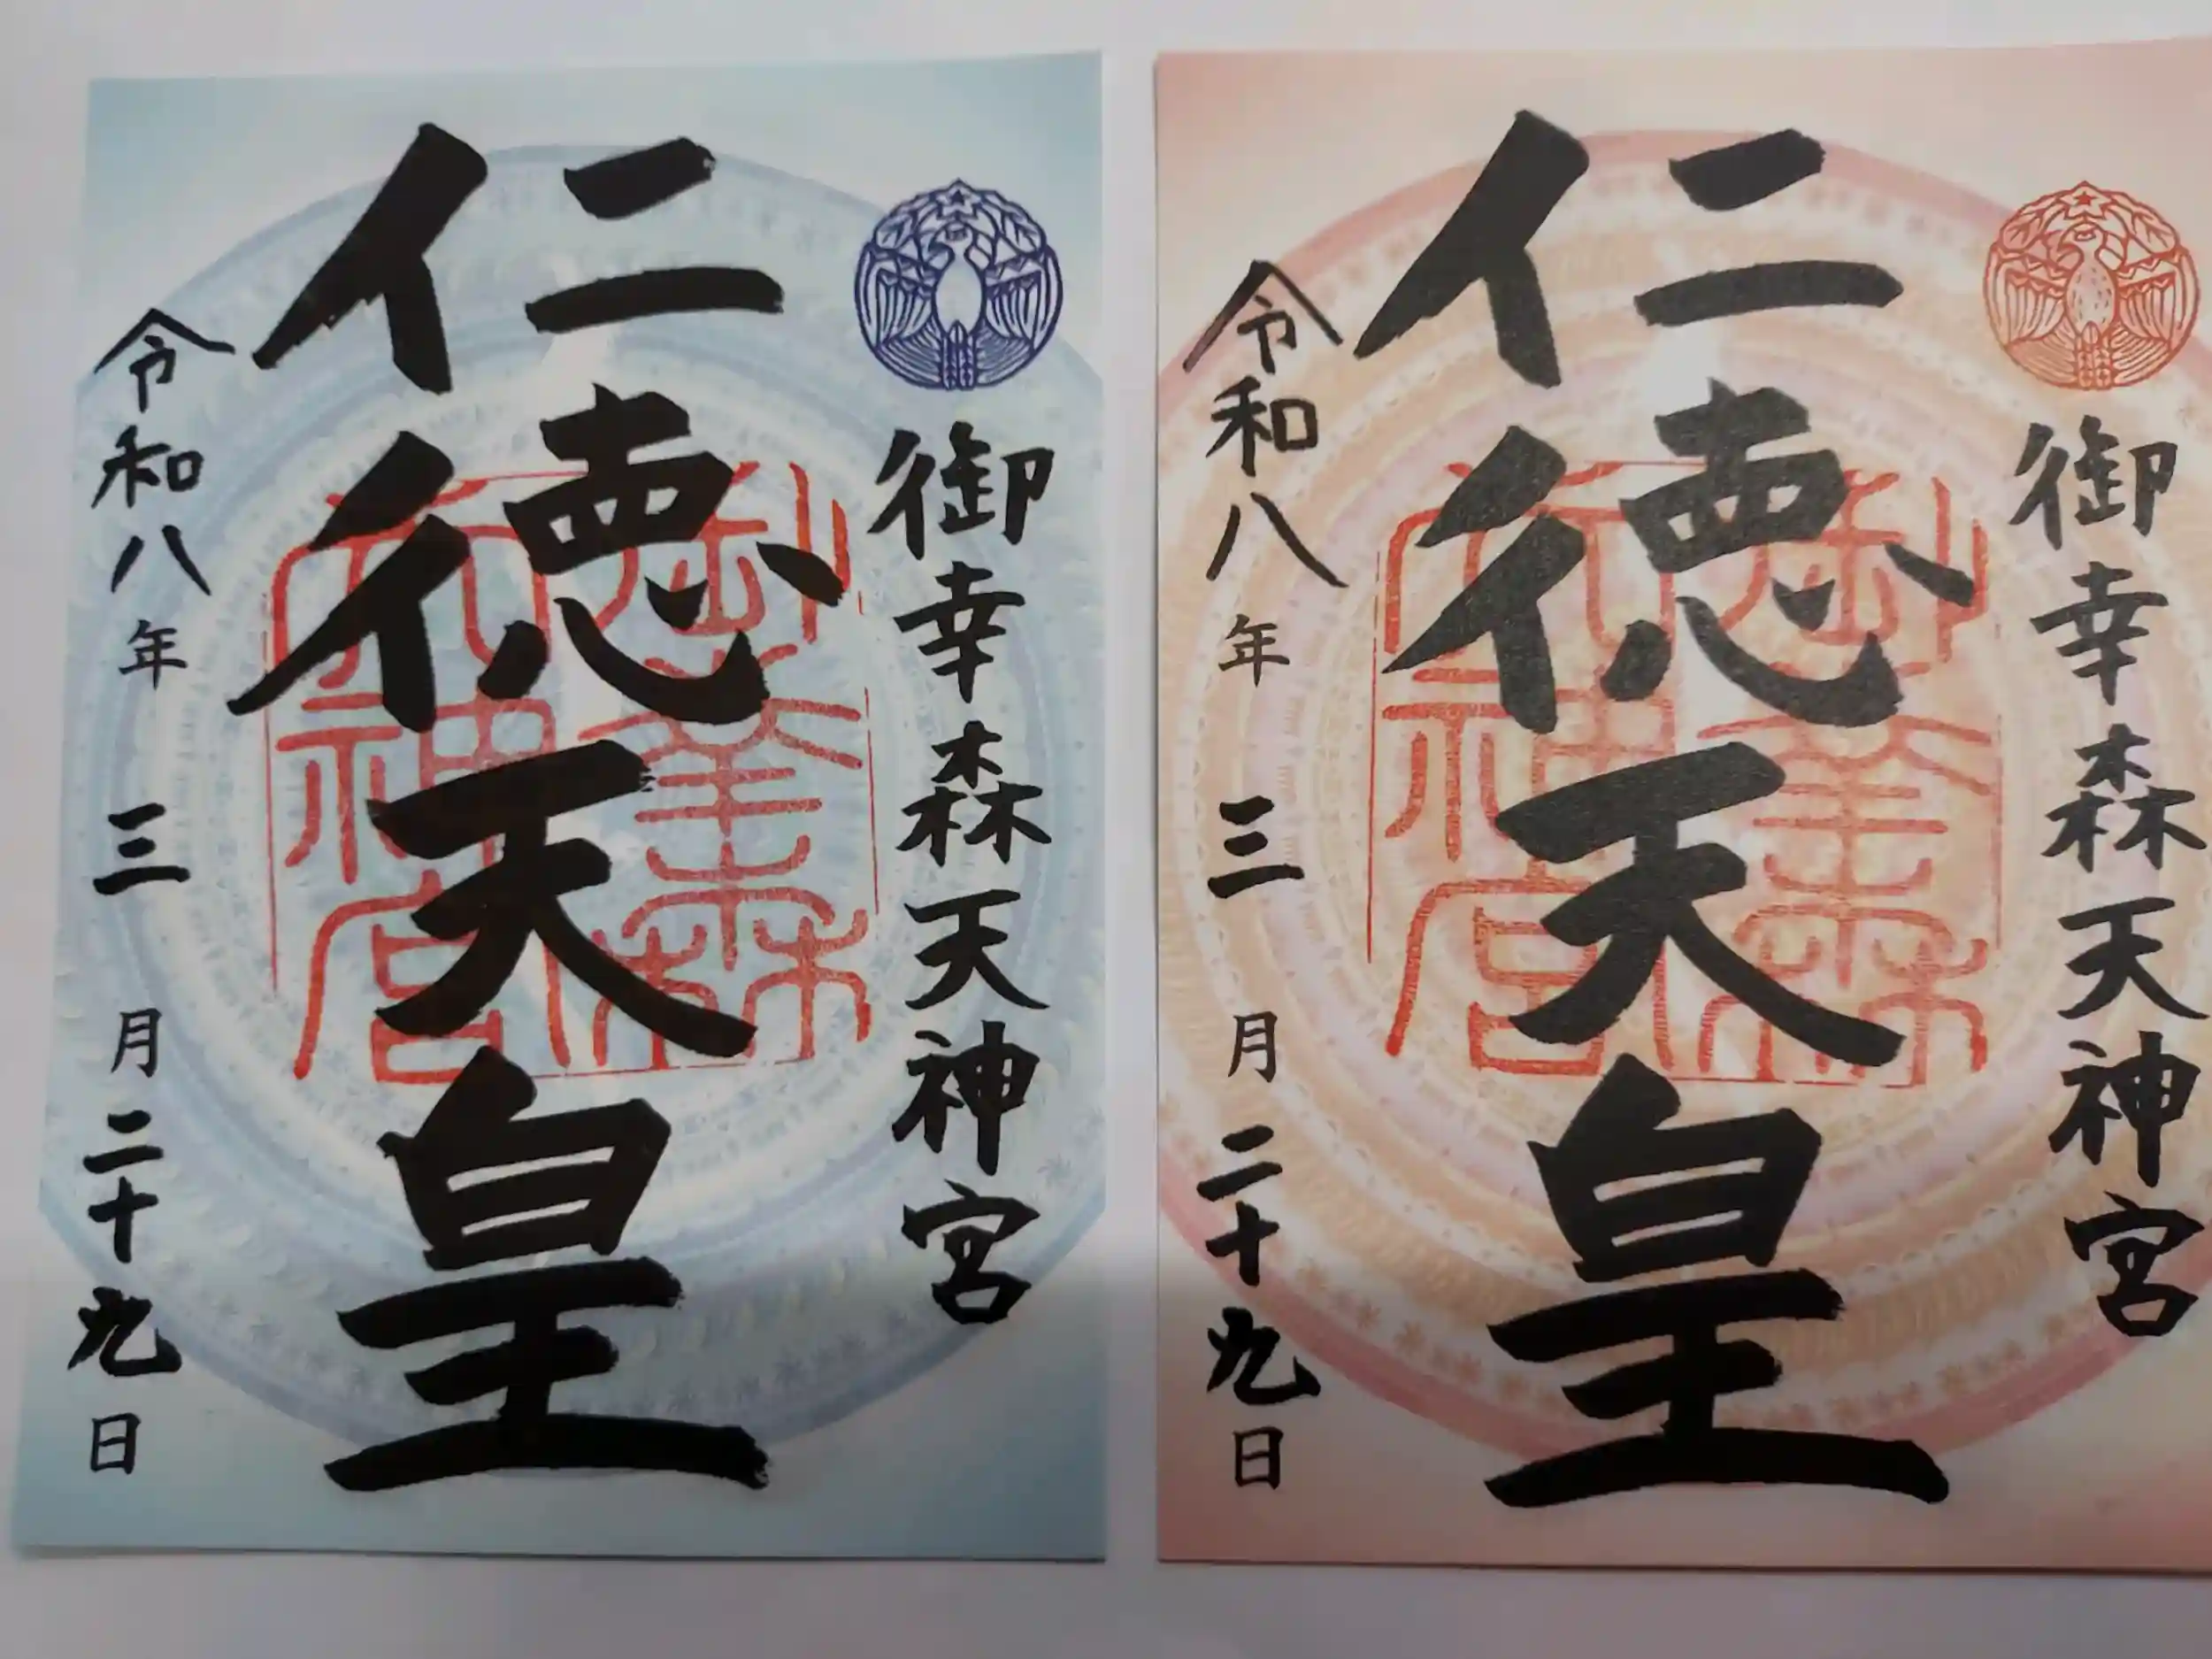 御幸森天神宮
仁徳天皇
令和八年三月二十九日
御幸森天神宮
仁徳天皇
令和八年三月二十九日